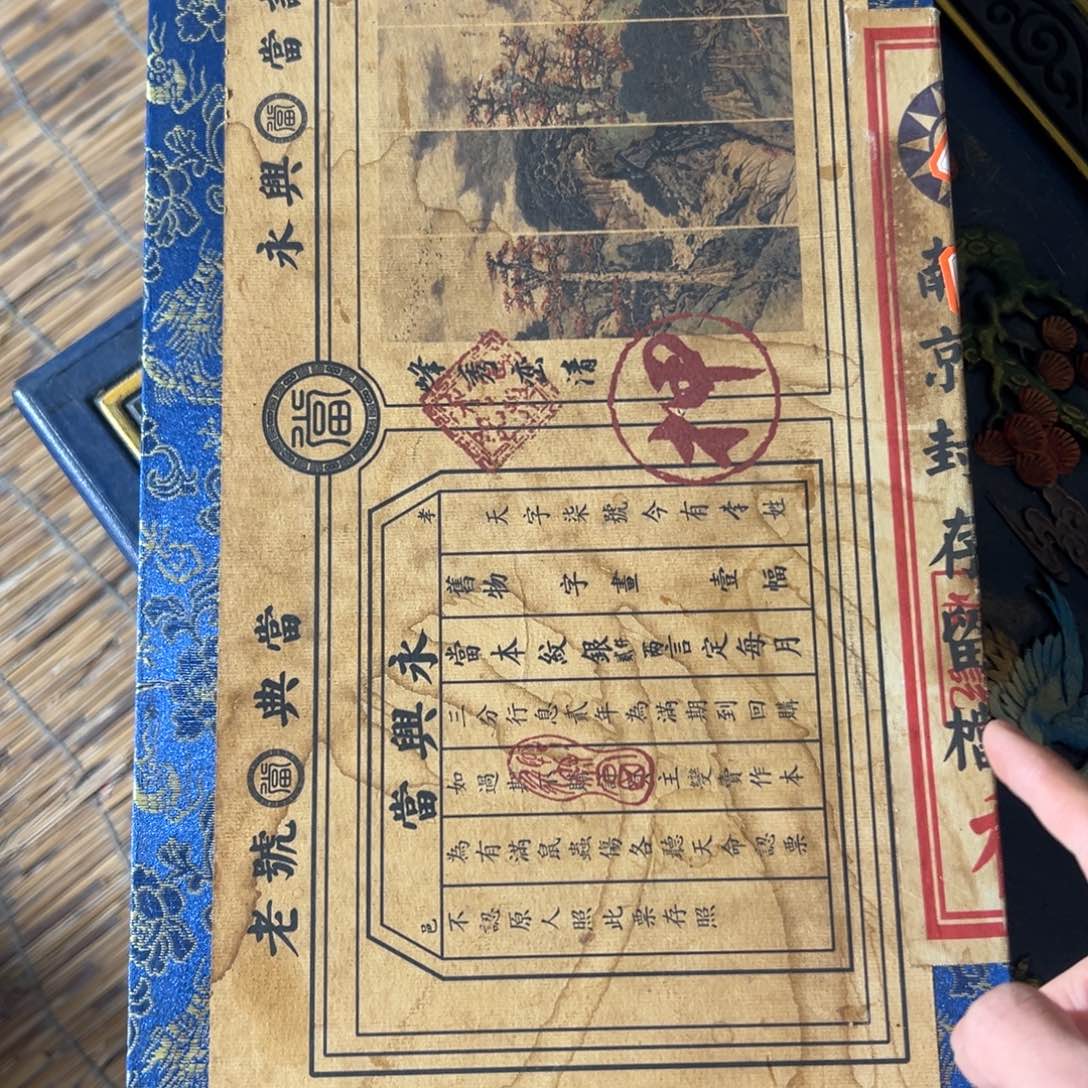 老號典當
永興當
峰秀巒清
永興當
天字柒號今有李姓
舊物 字畫 壹幅
當本紋銀貳仟兩言定每月
三分行息貳年為滿期到回購
如過期 主變賣作本
為有滿鼠蟲傷各聽天命認票
不認原人照此票存照
邑
南京封存監檔